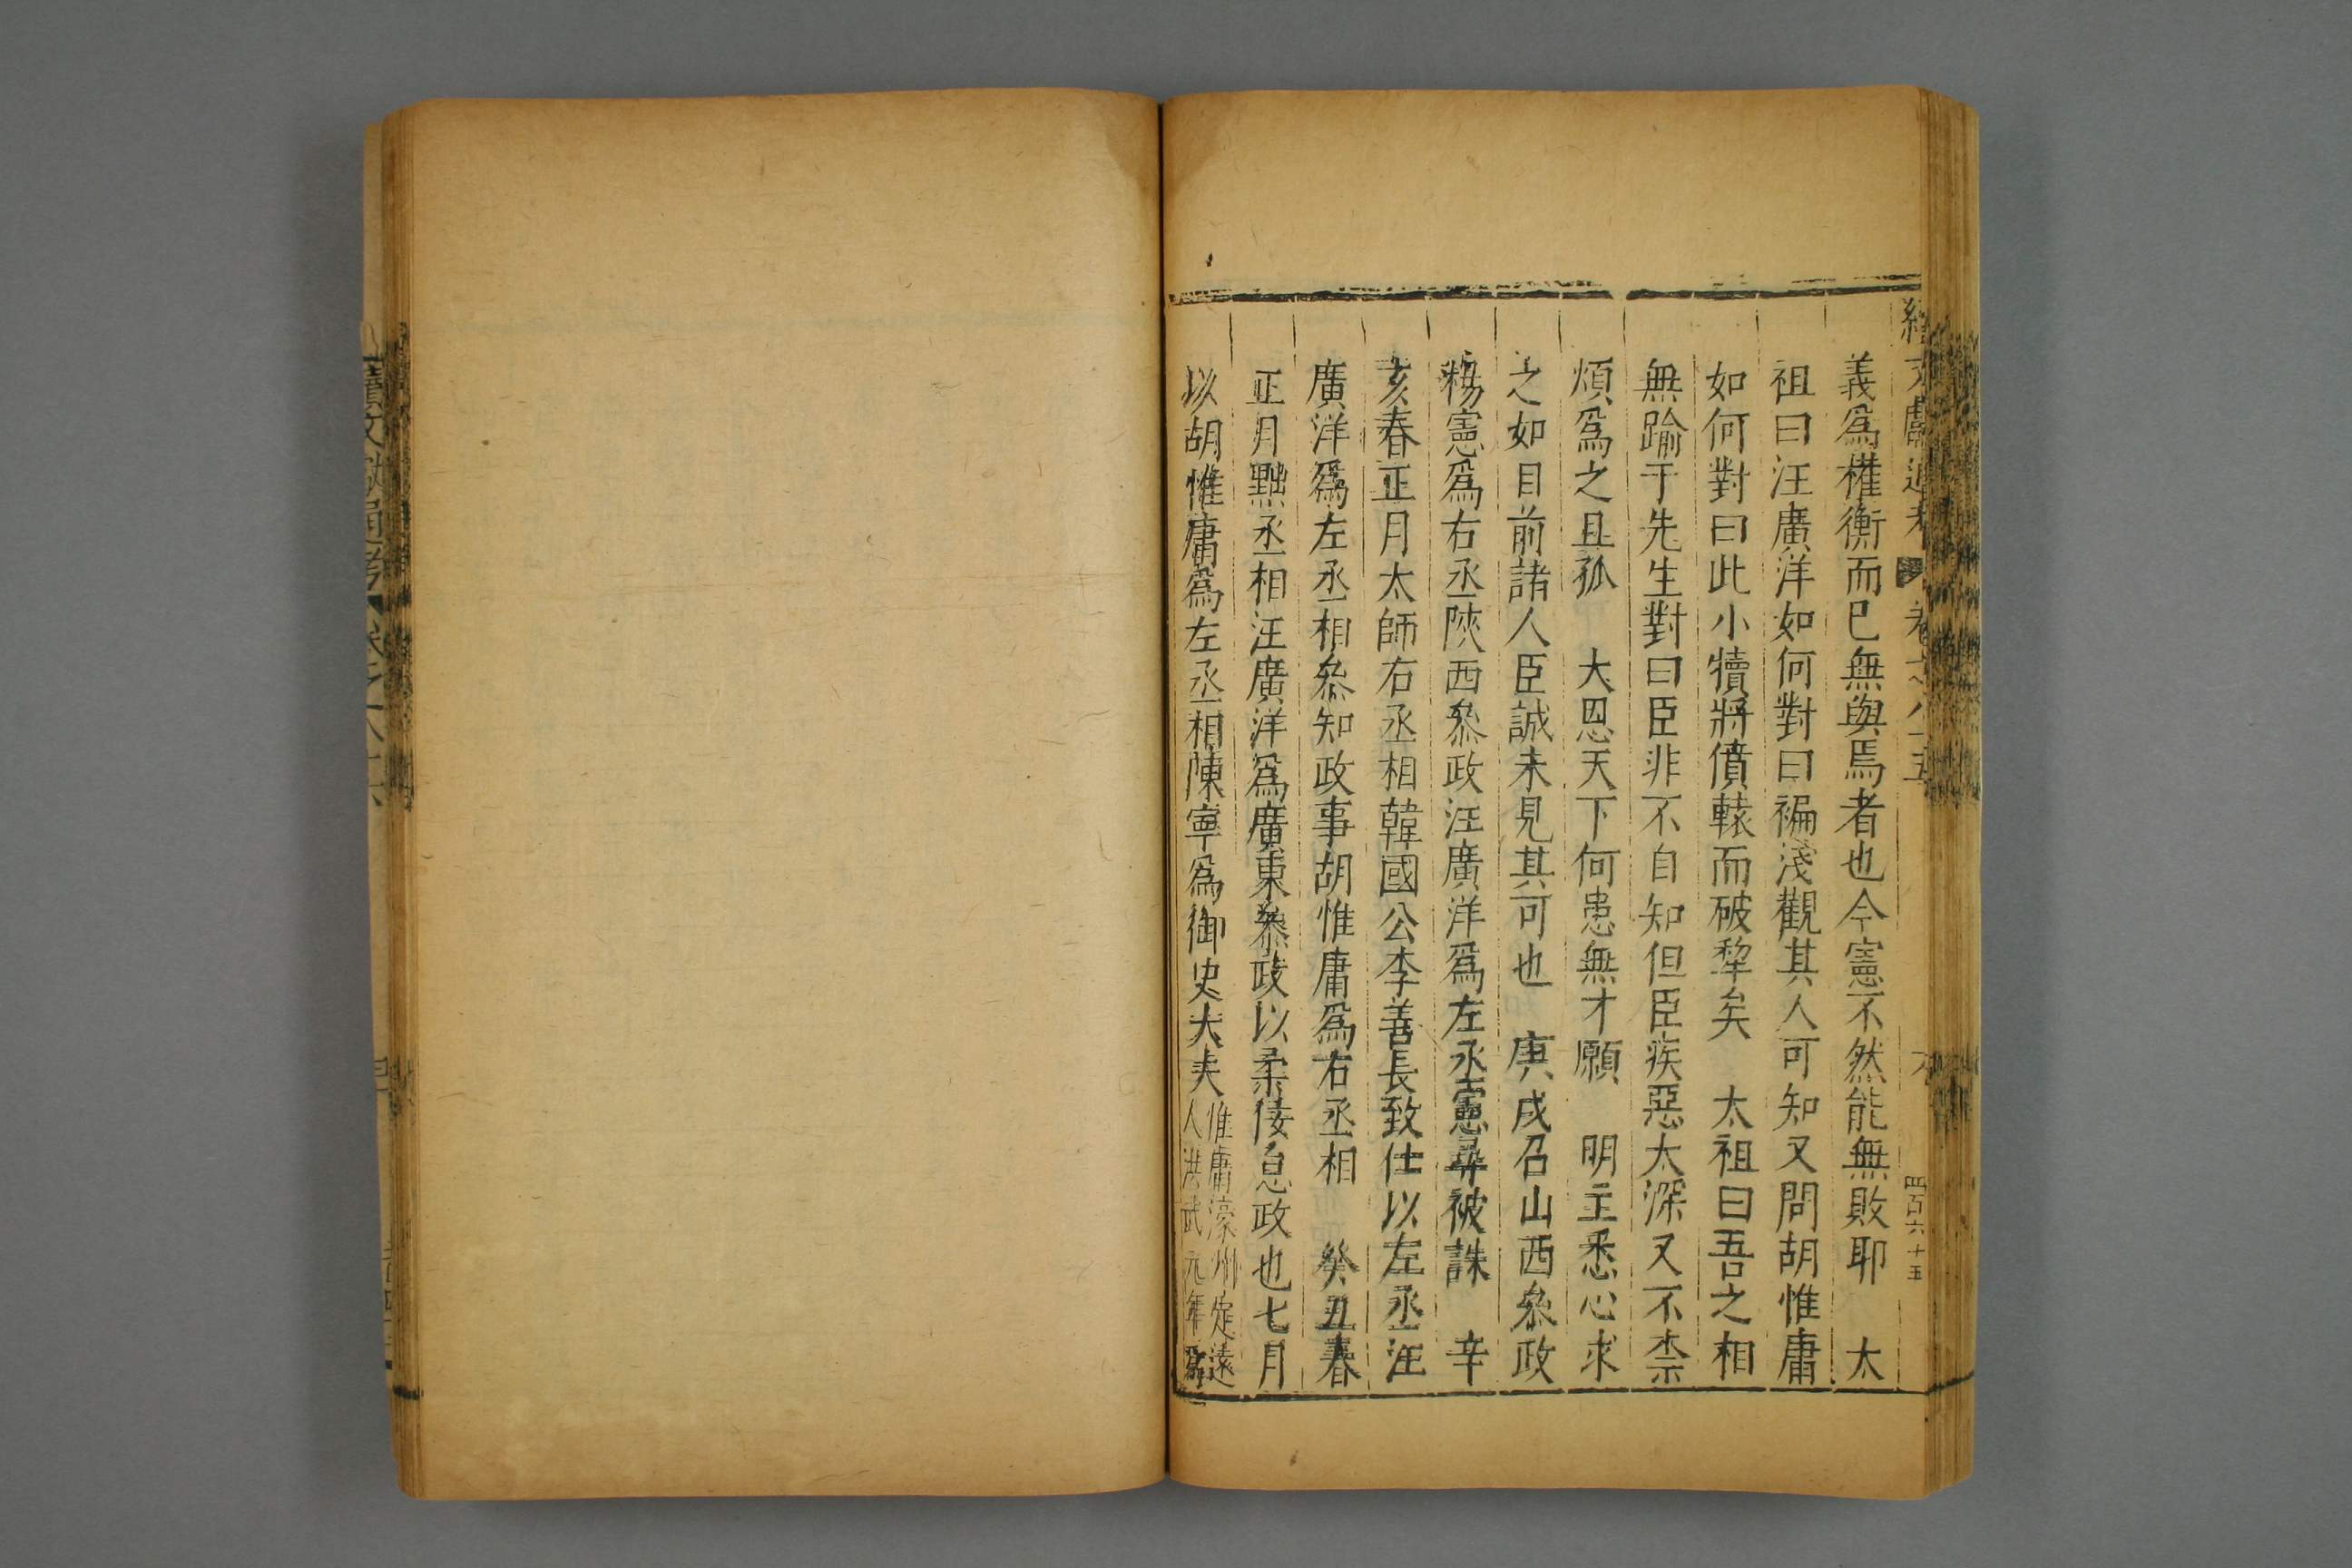 義爲權衡而巳無與焉者也今憲不然能無敗耶　太
祖曰汪廣洋如何對曰褊淺觀其人可知又問胡惟庸
如何對曰此小犢將僨轅而破犂矣　太祖曰吾之相
無踰于先生對曰臣非不自知但臣疾惡太深又不柰
煩爲之且孤　大恩天下何患無才願　明主悉心求
之如目前諸人臣誠未見其可也　庚戌召山西叅政
楊憲爲右丞陝西叅政汪廣洋爲左丞憲尋被誅　辛
亥春正月太師右丞相韓國公李善長致仕以左丞汪
廣洋爲左丞相叅知政事胡惟庸爲右丞相　癸丑春
正月黜丞相汪廣洋爲廣東叅政以柔倭怠政也七月
以胡惟庸爲左丞相陳寧爲御史大夫
惟庸濠州定遠
人洪武元年爲
四百六十五
續文獻通考